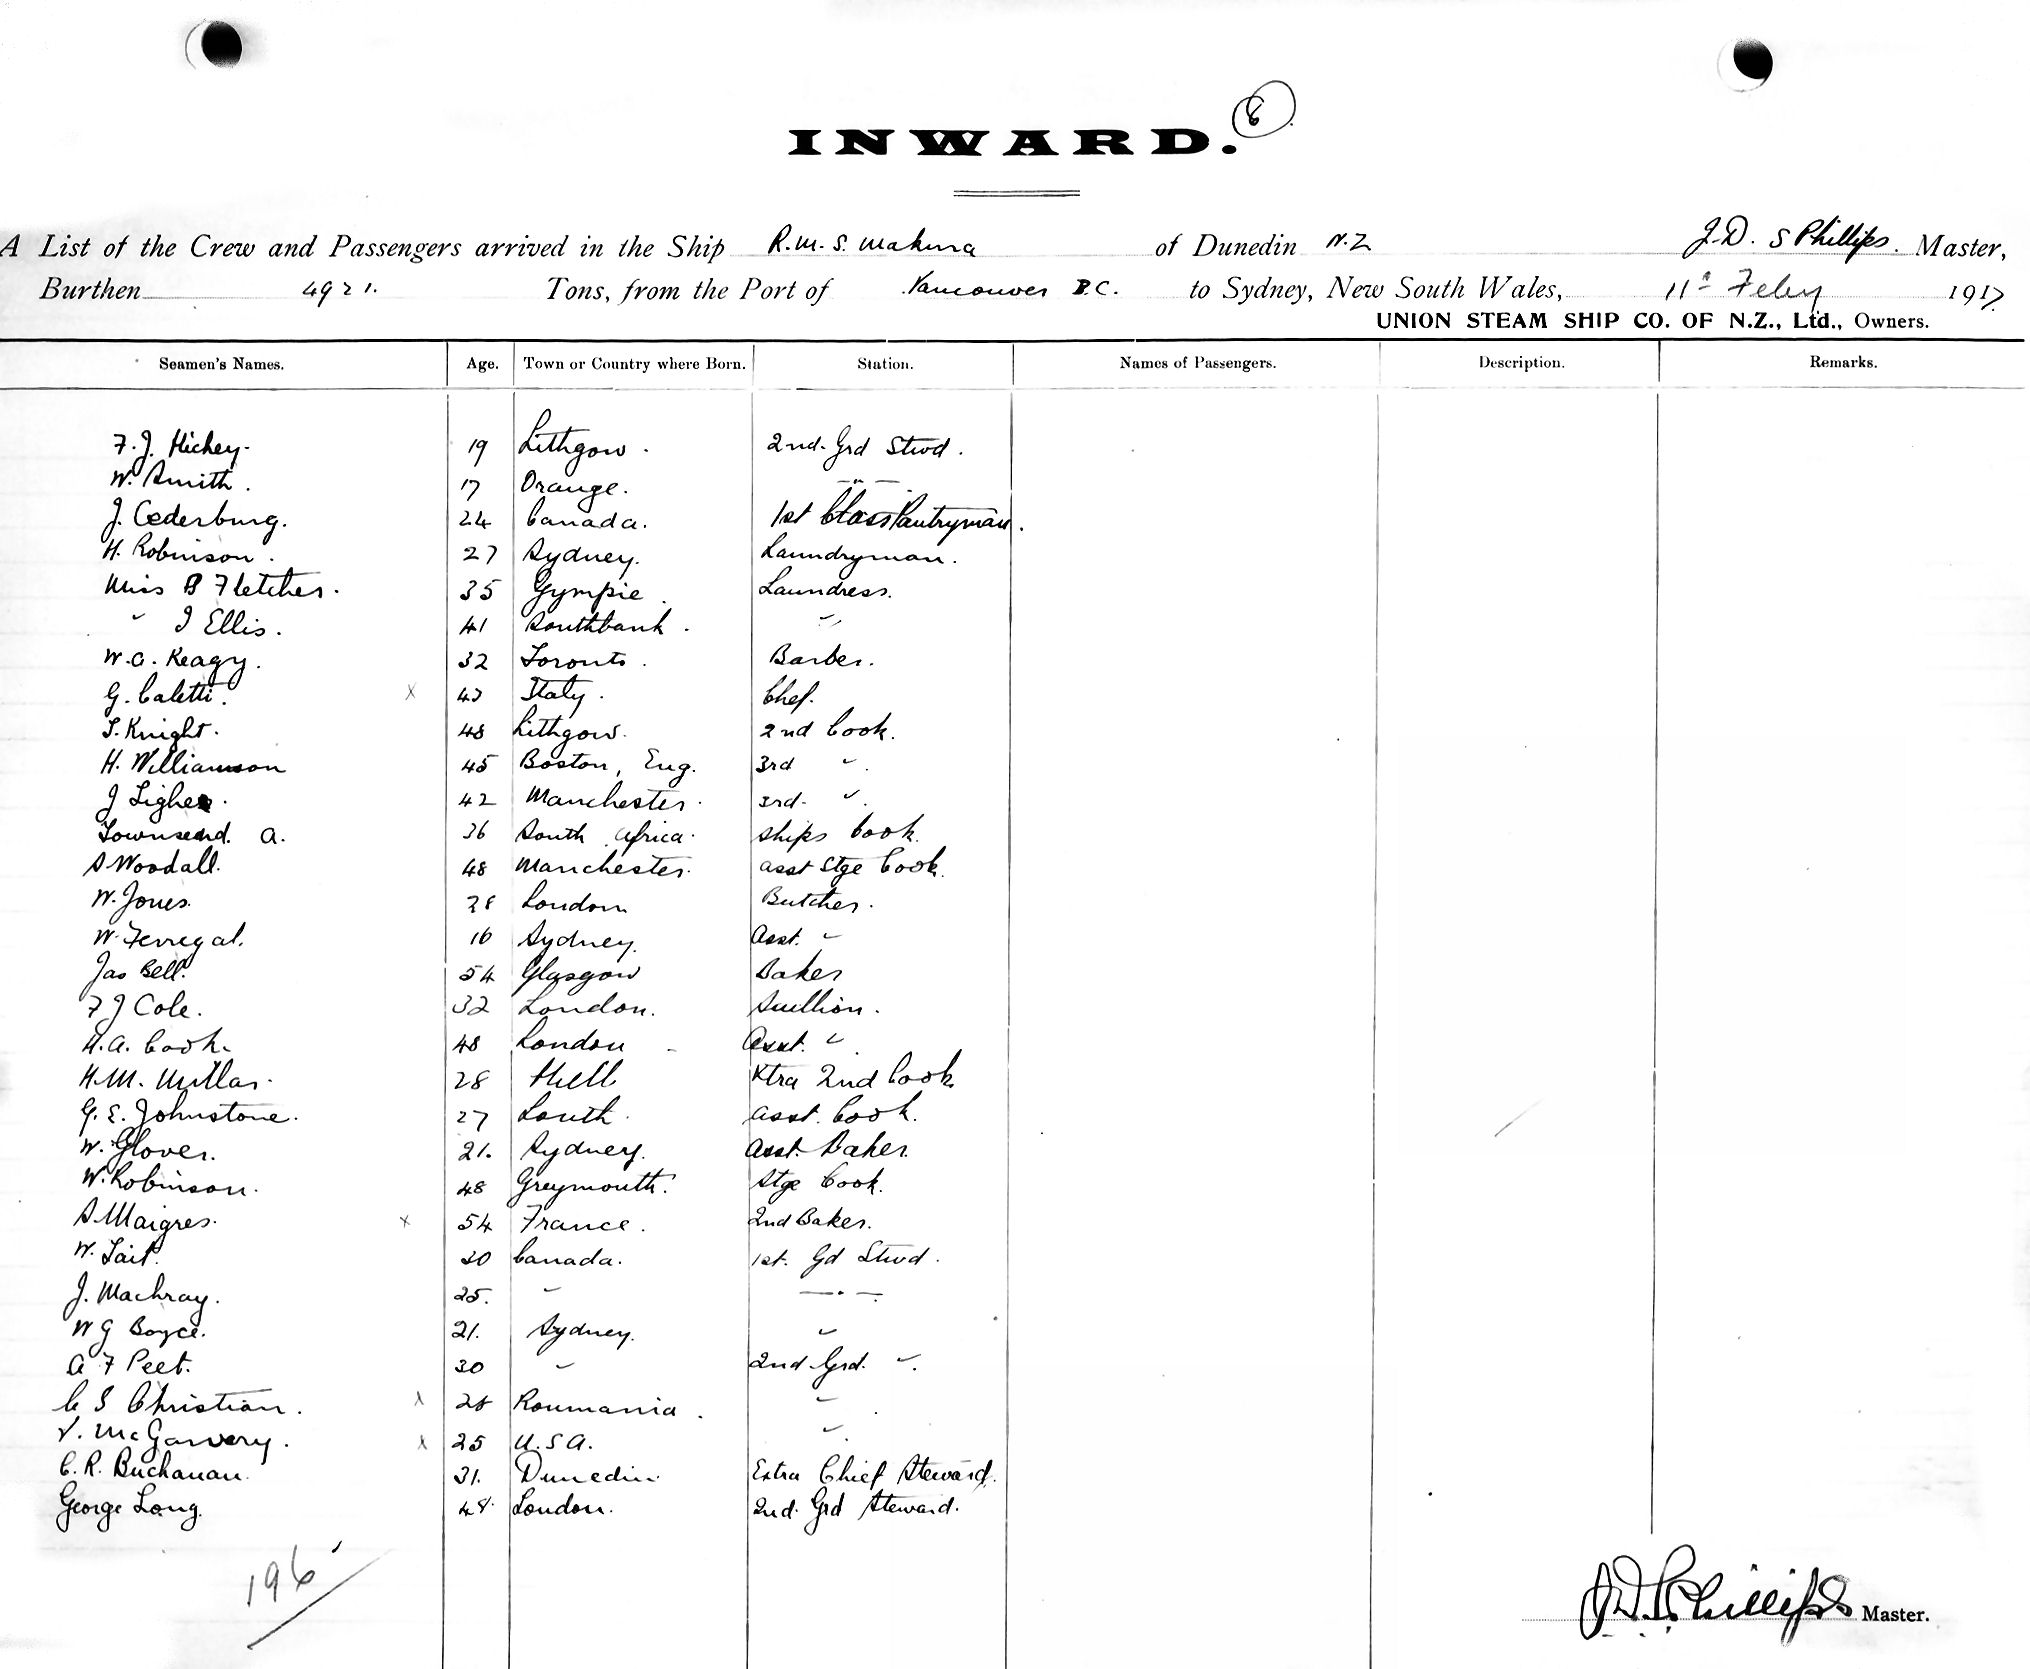 6
INWARD.
A List of the Crew and Passengers arrived in the Ship R.M.S. Makura of Dunedin N.Z J.D. S Phillips. Master,
Burthen 4921. Tons, from the Port of Vancouver B.C. to Sydney, New South Wales, 11th Feby 1917
UNION STEAM SHIP CO. OF N.Z., Ltd., Owners.
Seamen's Names. Age. Town or Country where Born. Station. Names of Passengers. Description. Remarks.
F. J. Hickey. 19 Lithgow. 2nd. Grd Stwd.
W. Smith. 17 Orange. — " —.
J. Cederburg. 24 Canada. 1st Class Pantryman.
H. Robinson. 27 Sydney. Laundryman.
Miss B Fletcher. 35 Gympie. Laundress.
" I Ellis. 41 Southbank. "
W. A. Keagy. 32 Toronto. Barber.
G. Caletti. x 43 Italy. Chef.
T. Knight. 48 Lithgow. 2nd Cook.
H. Williamson 45 Boston, Eng. 3rd ".
J 42 Manchester. 3rd. ".
Townsend. A. 36 South Africa. Ships Cook.
S Woodall. 48 Manchester. Asst Stge Cook.
W. Jones. 28 London Butcher.
W. Ferregal. 16 Sydney. Asst. "
Jas Bell. 54 Glasgow Baker
F J Cole. 32 London. Scullion.
H. A. Cook. 48 London Asst. "
H. M. Millar. 28 Hull Xtra 2nd Cook
G. E. Johnstone. 27 Louth. Asst. Cook.
W. Glover. 21. Sydney. Asst. Baker.
W. Robinson. 48 Greymouth. Stge Cook.
S Maigres. x 54 France. 2nd Baker.
W. Tait. 30 Canada. 1st. Gd Stwd.
J. Machray. 25. " — " —.
W G Boyce. 21. Sydney. "
A F Peet. 30 " 2nd Grd. ".
C S Christian. x 28 Roumania. "
McGarvery. x 25 U.S.A. "
C. R. Buchanan. 31. Dunedin. Extra Chief Steward.
George Long. 48. London. 2nd. Grd Steward.
196
J.D.S. Phillips Master.